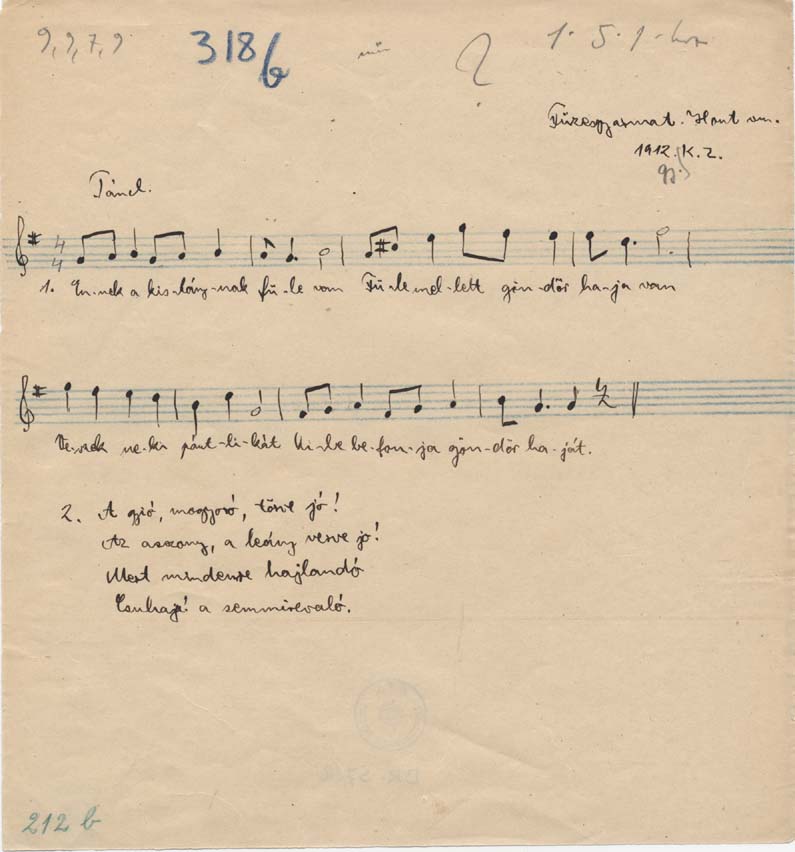 9, 9, 7, 9.
318
b
1. 5. 1-
Füzesgyarmat. Hont vm.
1912. K. Z.
gy.
Táncd.
4
4
1. En-nek a kis-lány-nak fü-le van Fü-le mel-lett gön-dör ha-ja van
Ve-szek ne-ki pánt-li-kát ki-be be-fon-ja gön-dör ha-ját.
2. A gió, mogyoró, törve jó!
Az asszony, a leány verve jó!
Mert mindenre hajlandó
Csuhajá! a semmirevaló.
212 b